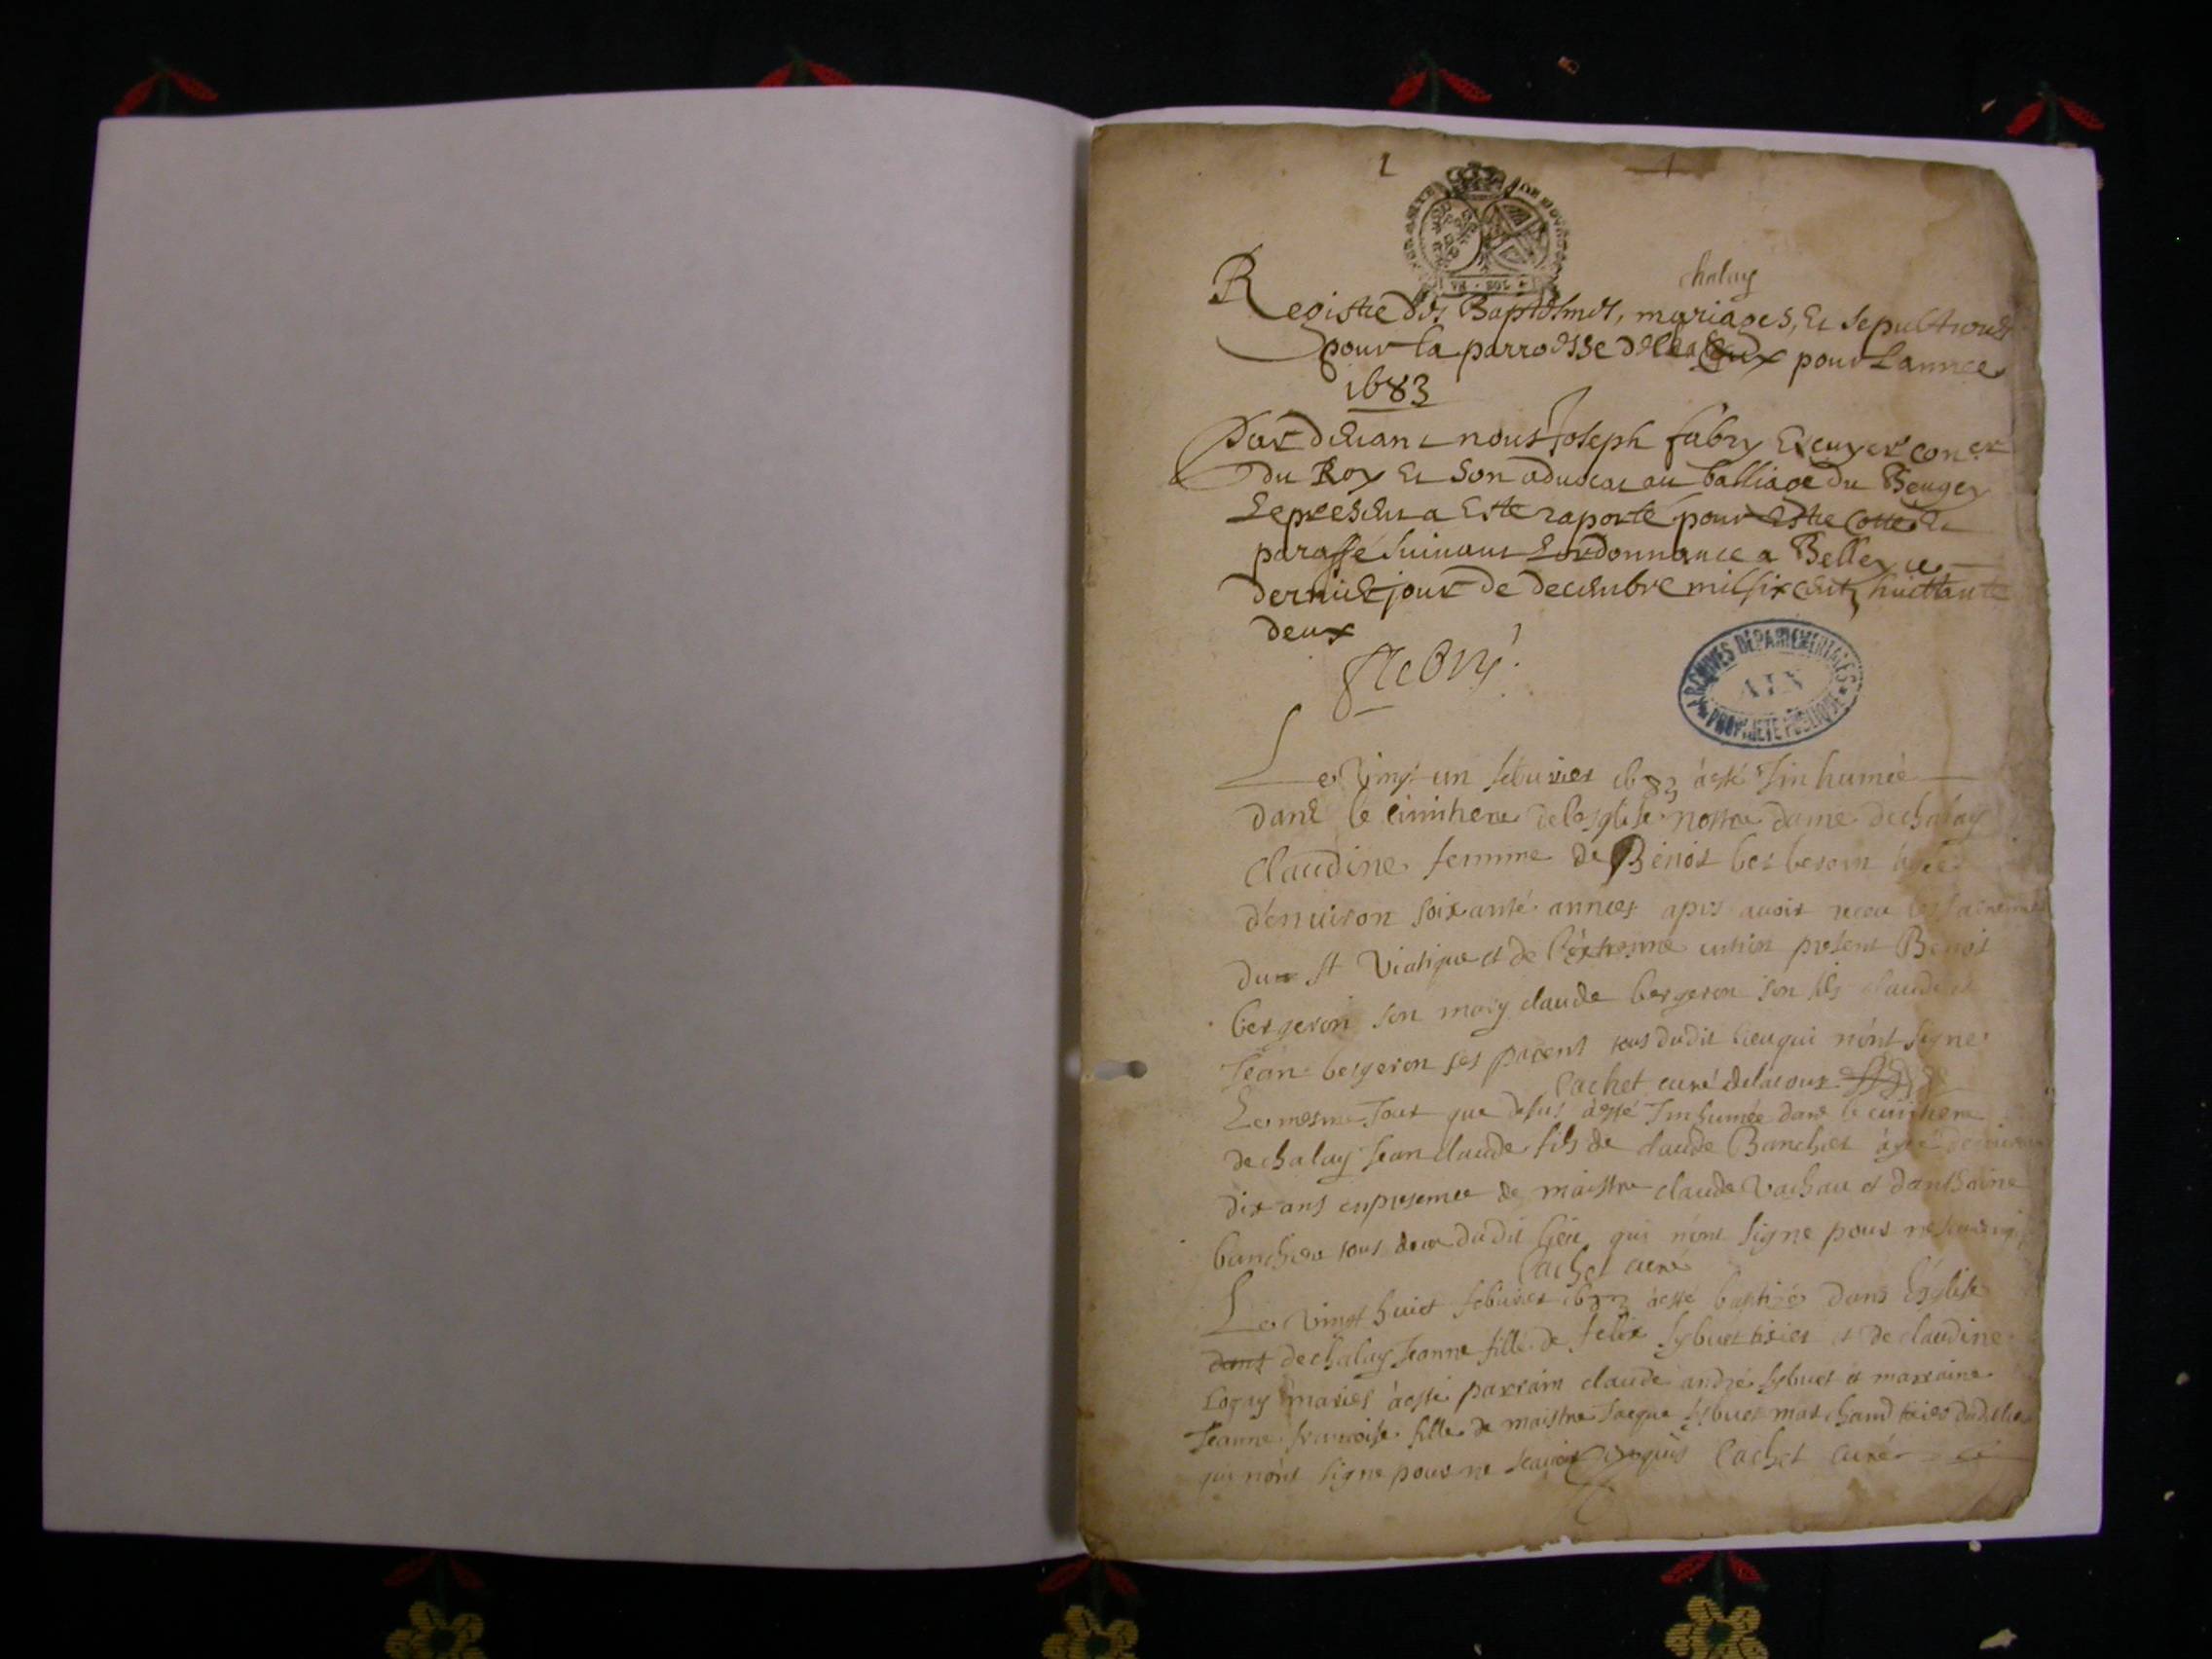 1 1
UN SOL
chalay
Registre des Baptesmes, mariages, et sepultures
pour la parroisse de pour Lannee
1683
Par devant nous Joseph fabry Escuyer con.er
du Roy et son advocat au balliage du Beugey
Le present a Este raporté pour Estre Cotté et
paraffé suivant Lordonnance a Belley ce
dernier jour de decembre mil six cent huittante
deux
fabry
ARCHIVES DÉPARTEMENTALES
AIN
PROPRIÉTÉ PUBLIQUE
Le vingt un febvrier 1683 à esté Inhumée
dans le cimithere de lesglise nostre dame de chalay
Claudine femme de Benoit agée
d'environ soixanté années apres avoir receu les sacrements
du St Viatique et de l'éxtresme untion présent Benoit
bergeron son mary claude bergeron son fils claude et
Jean bergeron ses parent tous dudit lieu qui n'ont signe
Cachet curé delacoux
Le mesme Jour que desus à esté Inhumée dans le cimithere
de chalay Jean claude fils de claude Banchet àgé denviron
dix ans en presence de maistre claude et danthoine
tous deux dudit lieu qui n'ont signe pour ne
Cachet curé
Le vingt huict febvrier 1683 à esté baptizée dans l'église
dans de chalay Jeanne fille de felix sybuet tixier et de claudine
mariés à esté parrain claude andré sybuet et marraine
Jeanne francoise fille de maistre Jacque sybuet marchand tixier dudit lieu
qui n'ont signe pour ne scavoir enquis Cachet curé